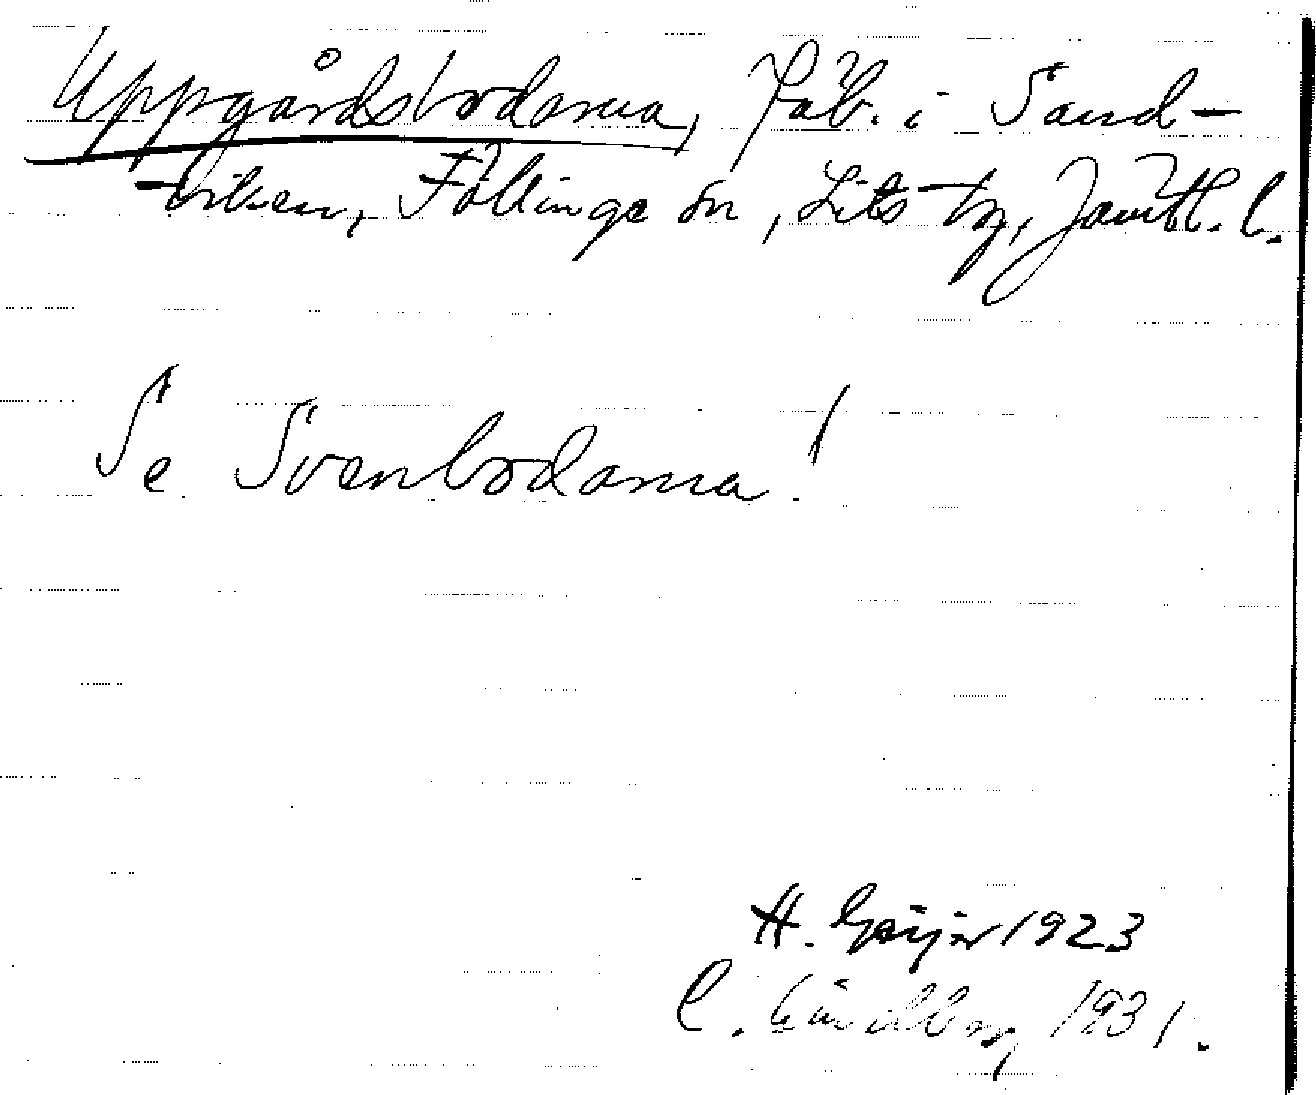 Uppgårdsbodarna, Fäb. i Sand-
-viken, Föllinge sn, Lits tg, Jämtl. l.
Se Svenbodarna!
H. Geijer 1923
C. Lindberg 1931.